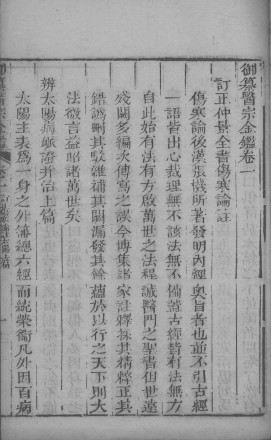 御纂醫宗金鑑卷一
訂正仲景全書傷寒論註
傷寒論後漢張機所著發明內經奧旨者也並不引古經
一語皆出心裁理無不該法無不備蓋古經皆有法無方
自此始有法有方啟萬世之法程誠醫門之聖書但世遠
殘闕多編次傳寫之誤今博集諸家註釋採其精粹正其
錯譌刪其駁雜補其闕漏發其餘蘊於以行之天下則大
法微言益昭諸萬世矣
辨太陽病脈證并治上篇
太陽主表為一身之外藩總六經而統榮衛凡外因百病
御纂醫宗金鑑
卷一